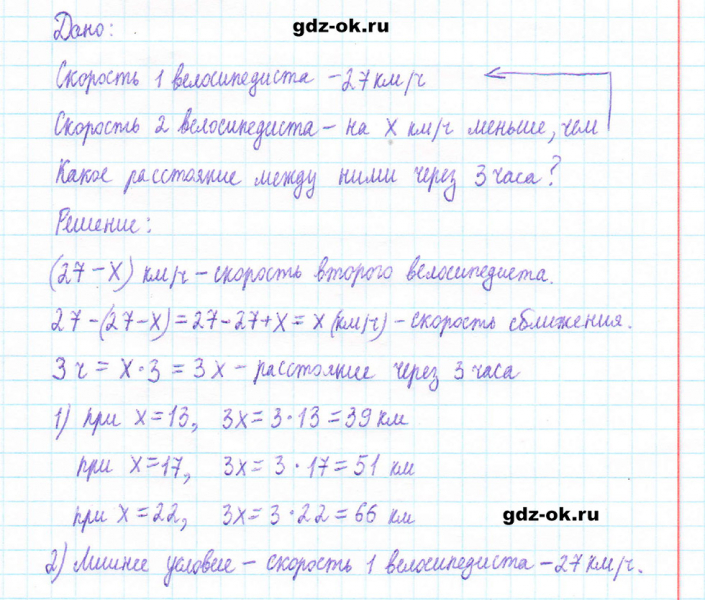 Дано:
gdz-ok.ru
Скорость 1 велосипедиста – 27 км/ч
Скорость 2 велосипедиста – на x км/ч меньше, чем
Какое расстояние между ними через 3 часа?
Решение:
(27 – x) км/ч – скорость второго велосипедиста.
27 – (27 – x) = 27 – 27 + x = x (км/ч) – скорость сближения.
3 ч = x · 3 = 3x – расстояние через 3 часа
1) при x = 13, 3x = 3 · 13 = 39 км
при x = 17, 3x = 3 · 17 = 51 км
при x = 22, 3x = 3 · 22 = 66 км
gdz-ok.ru
2) Лишнее условие – скорость 1 велосипедиста – 27 км/ч.